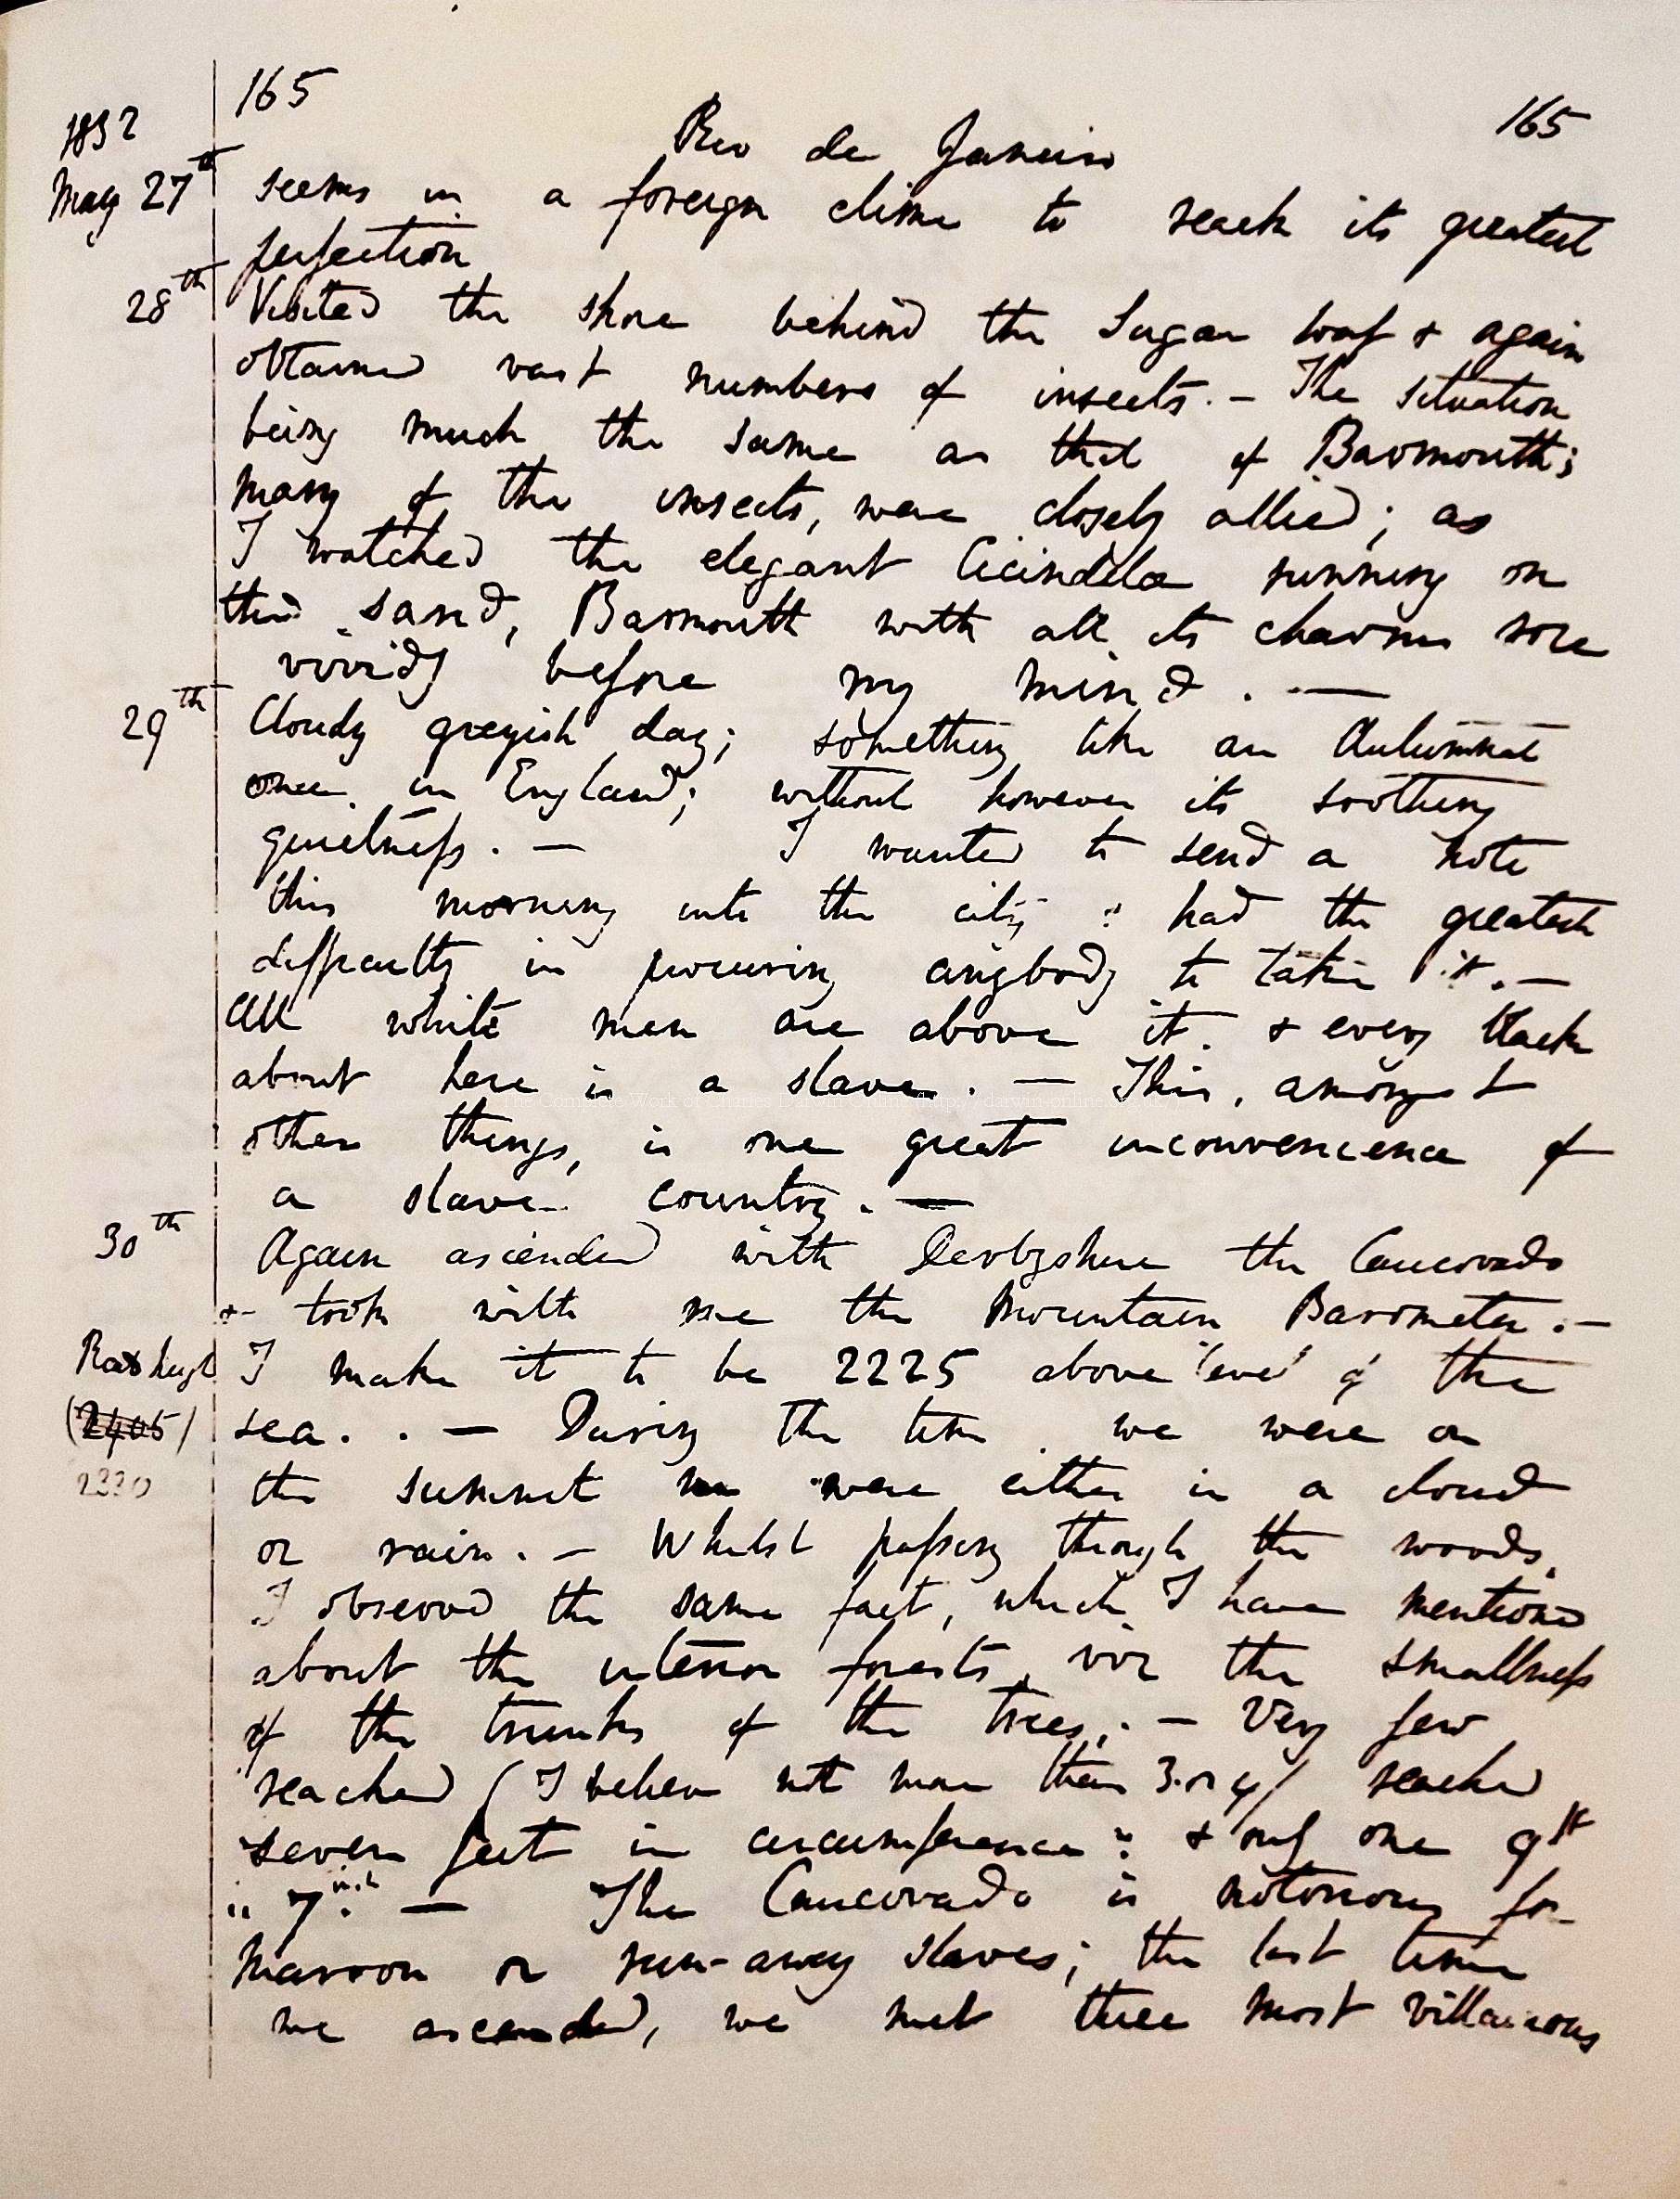 165
165
1832
Rio de Janeiro
May 27th
seems in a foreign clime to reach its greatest
perfection
28th
Visited the shore behind the Sugar loaf & again
obtained vast numbers of insects. — The situation
being much the same as that of Barmouth;
many of the insects, were closely allied; as
I watched the elegant Cicindela running on
the sand, Barmouth with all its charms rose
vividly before my mind. —
29th
Cloudy greyish day; something like an Autumnal
one in England; without however its soothing
quietness. — I wanted to send a note
this morning into the city & had the greatest
difficulty in procuring anybody to take it. —
All white men are above it, & every black
about here is a slave. — This, amongst
other things, is one great inconvenience of
a slave country. —
30th
Again ascended with Derbyshire the Caucovado
& took with me the Mountain Barometer. —
I make it to be 2225 above level of the
sea. . — During the time we were on
the summit we were either in a cloud
or rain. — Whilst passing through the woods,
I observed the same fact, which I have mentioned
about the interior forests, viz the smallness
of the trunks of the trees. — Very few
reached (I believe not more than 3 or 4) reached
seven feet in circumference: & only one 9ft
" 7 inch. — The Caucovado is notorious for
Maroon or run-away slaves; the last time
we ascended, we met three most villainous
(2405)
2330